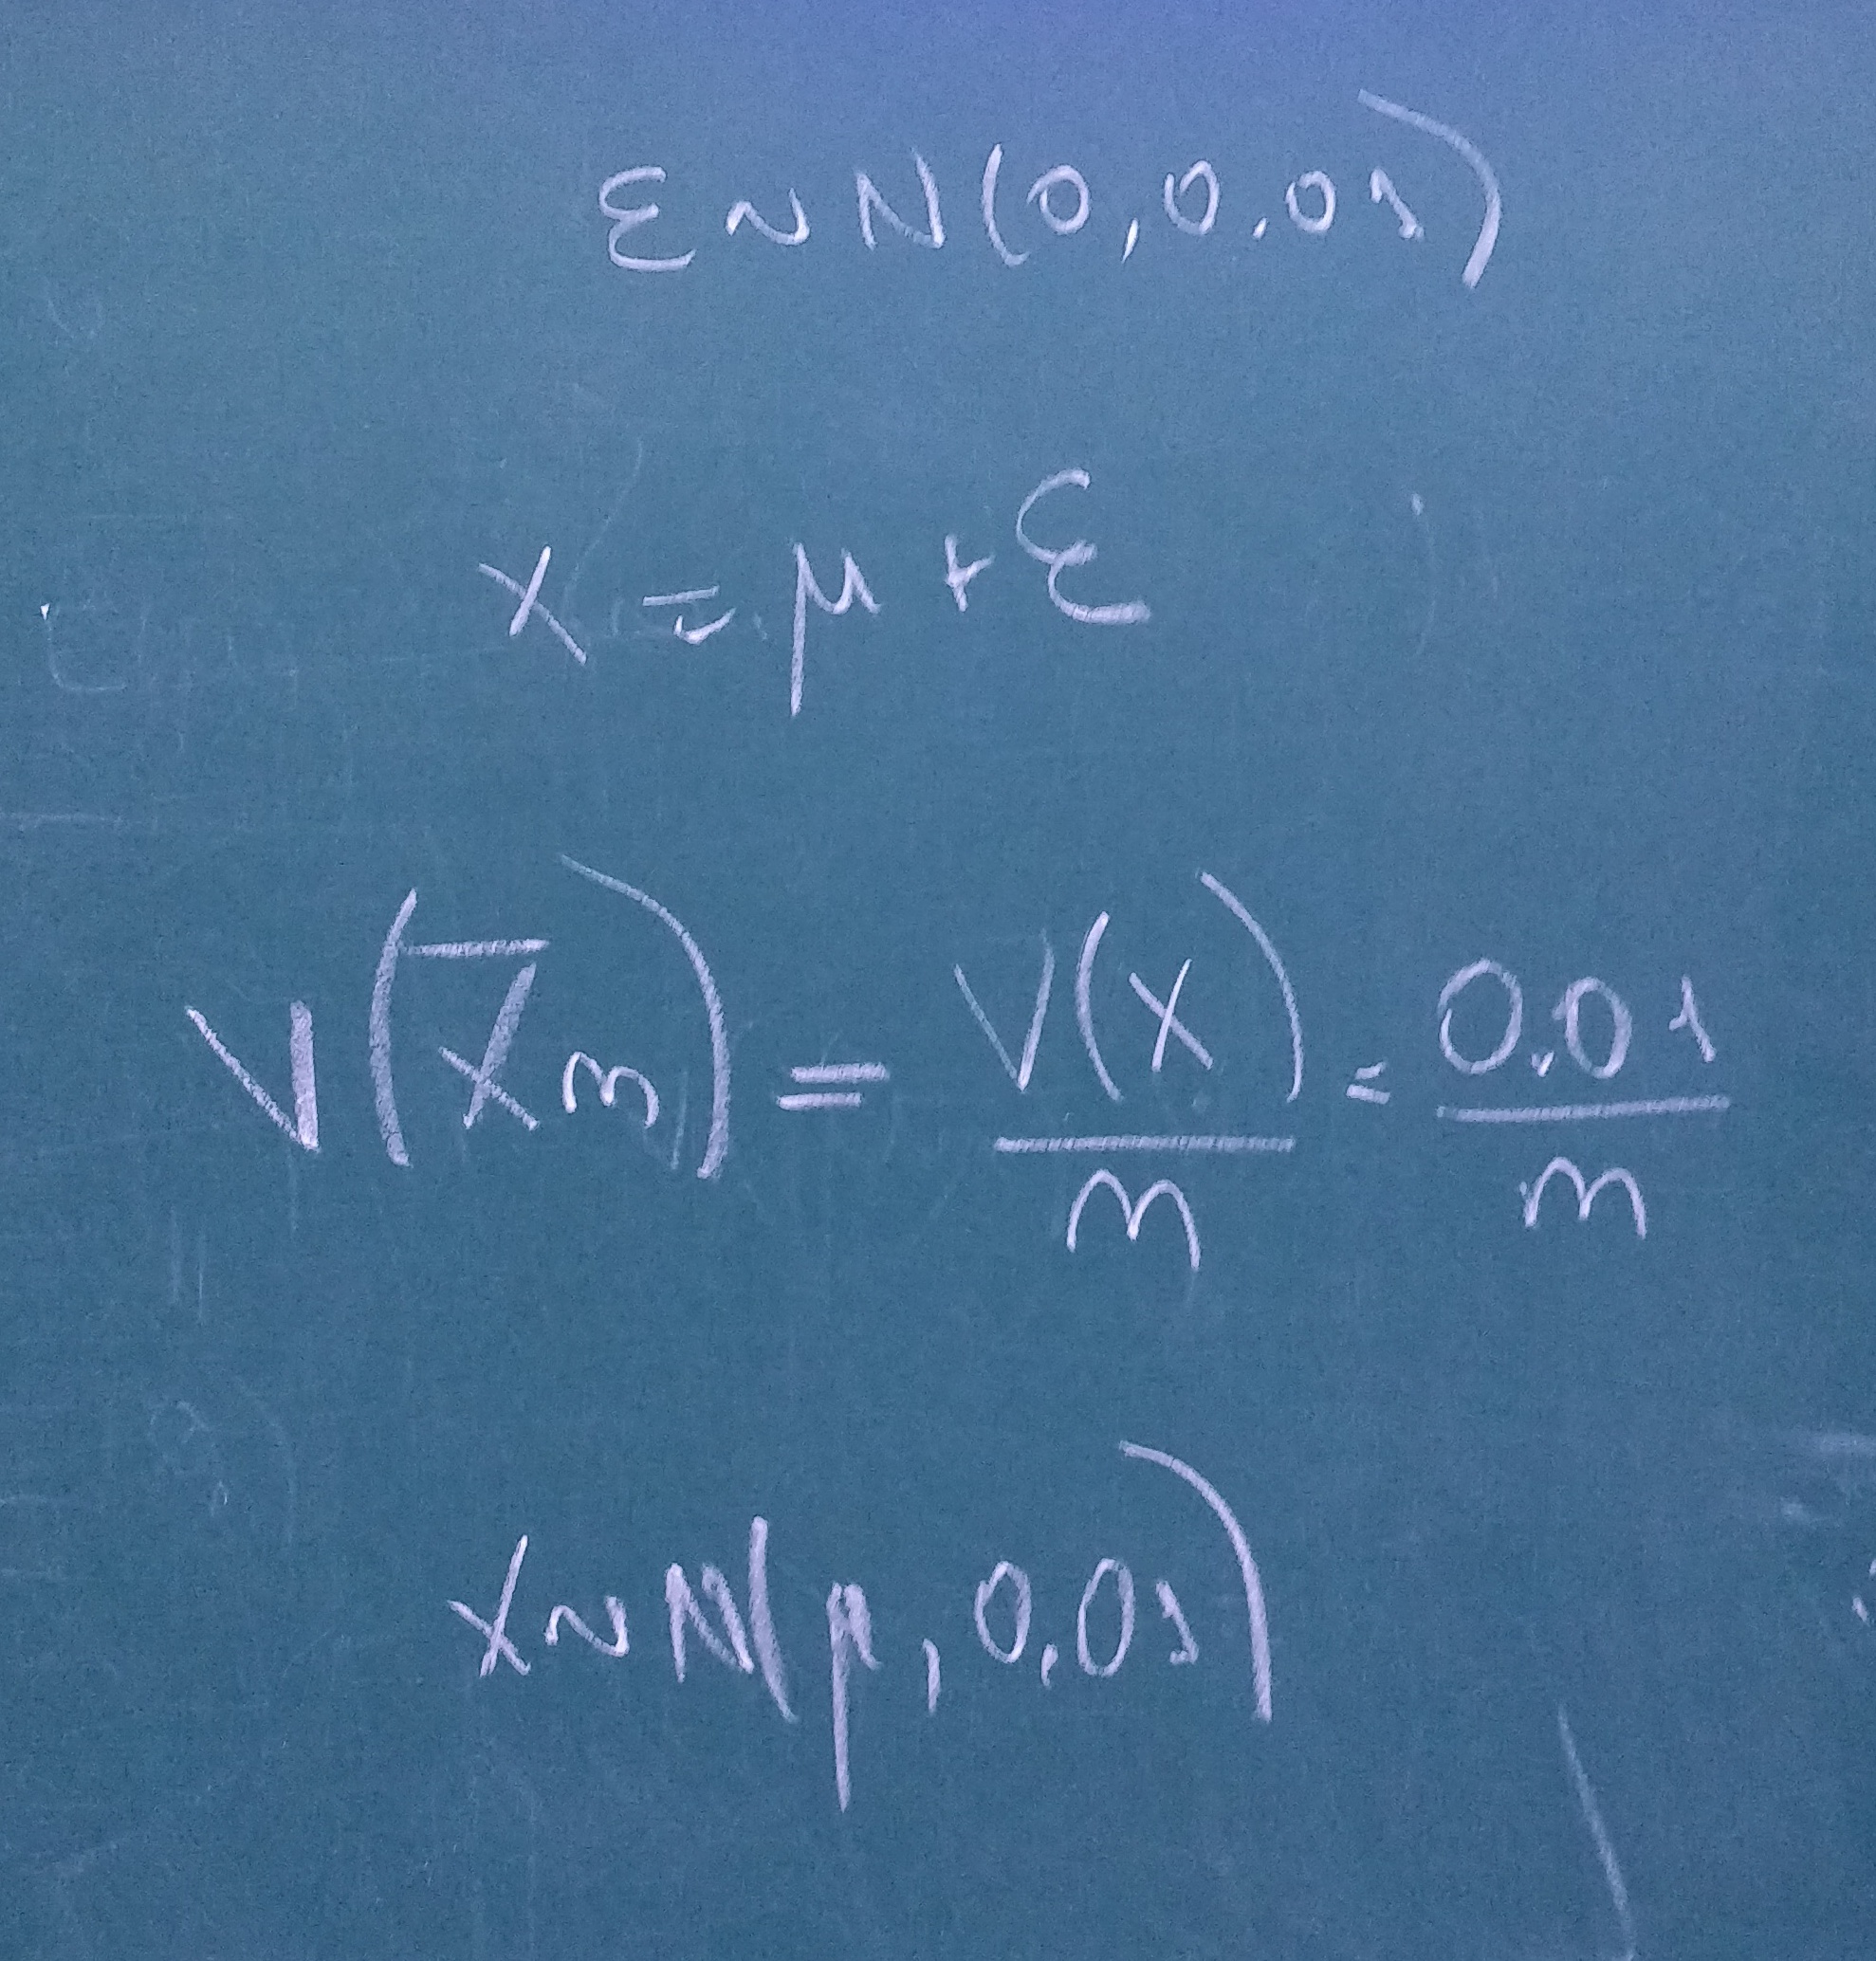 ε ~ N(0, 0.01)
X = μ + ε
V(X̄n) = V(X)/n = 0.01/n
X ~ N(μ, 0.01)